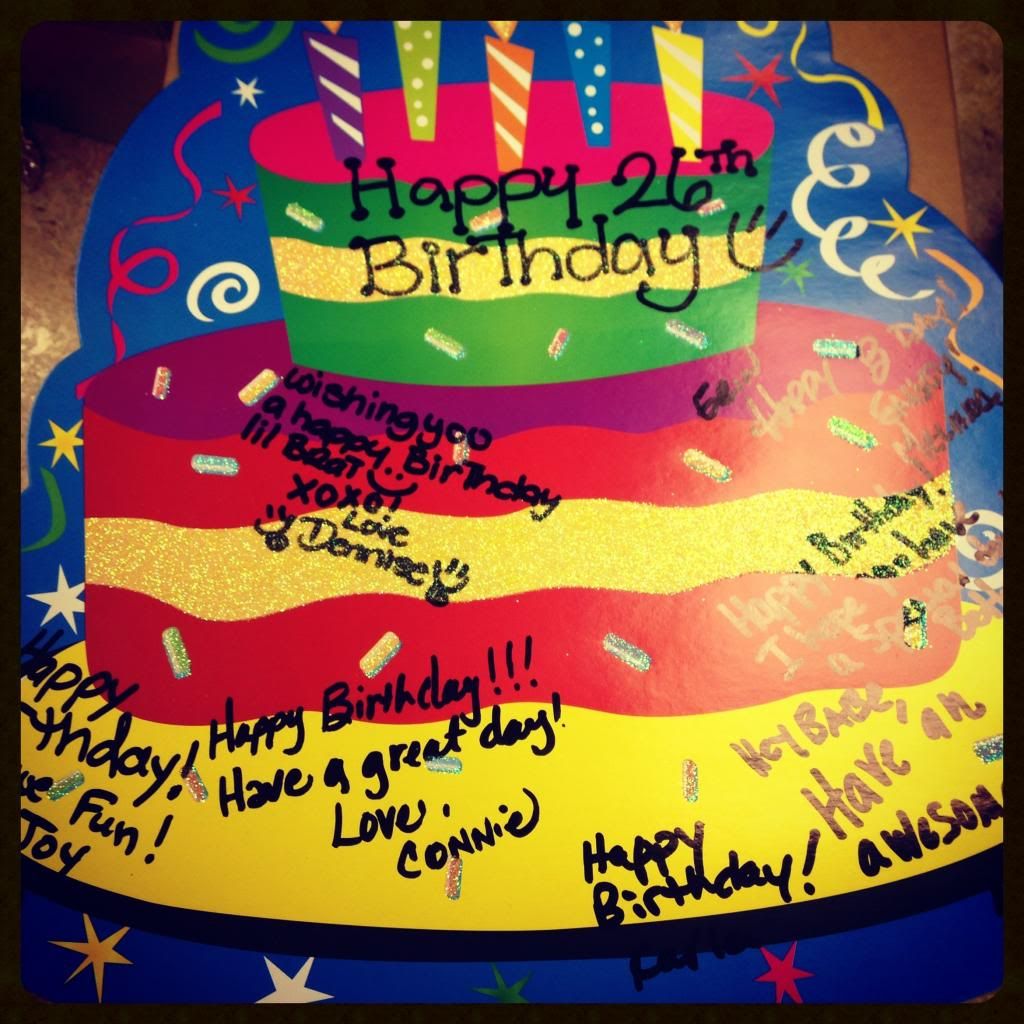 Happy 26Th
Birthday
wishing you
a happy Birthday
lil Brat
XOXO!
Love
Dennise
Happy B Day!
Birthday
Happy
I hope
a
Happy
thday!
Fun!
Joy
Happy Birthday!!!
Have a great day!
Love,
CONNIE
Hey BABE,
Have an
awesom
Happy
Birthday!